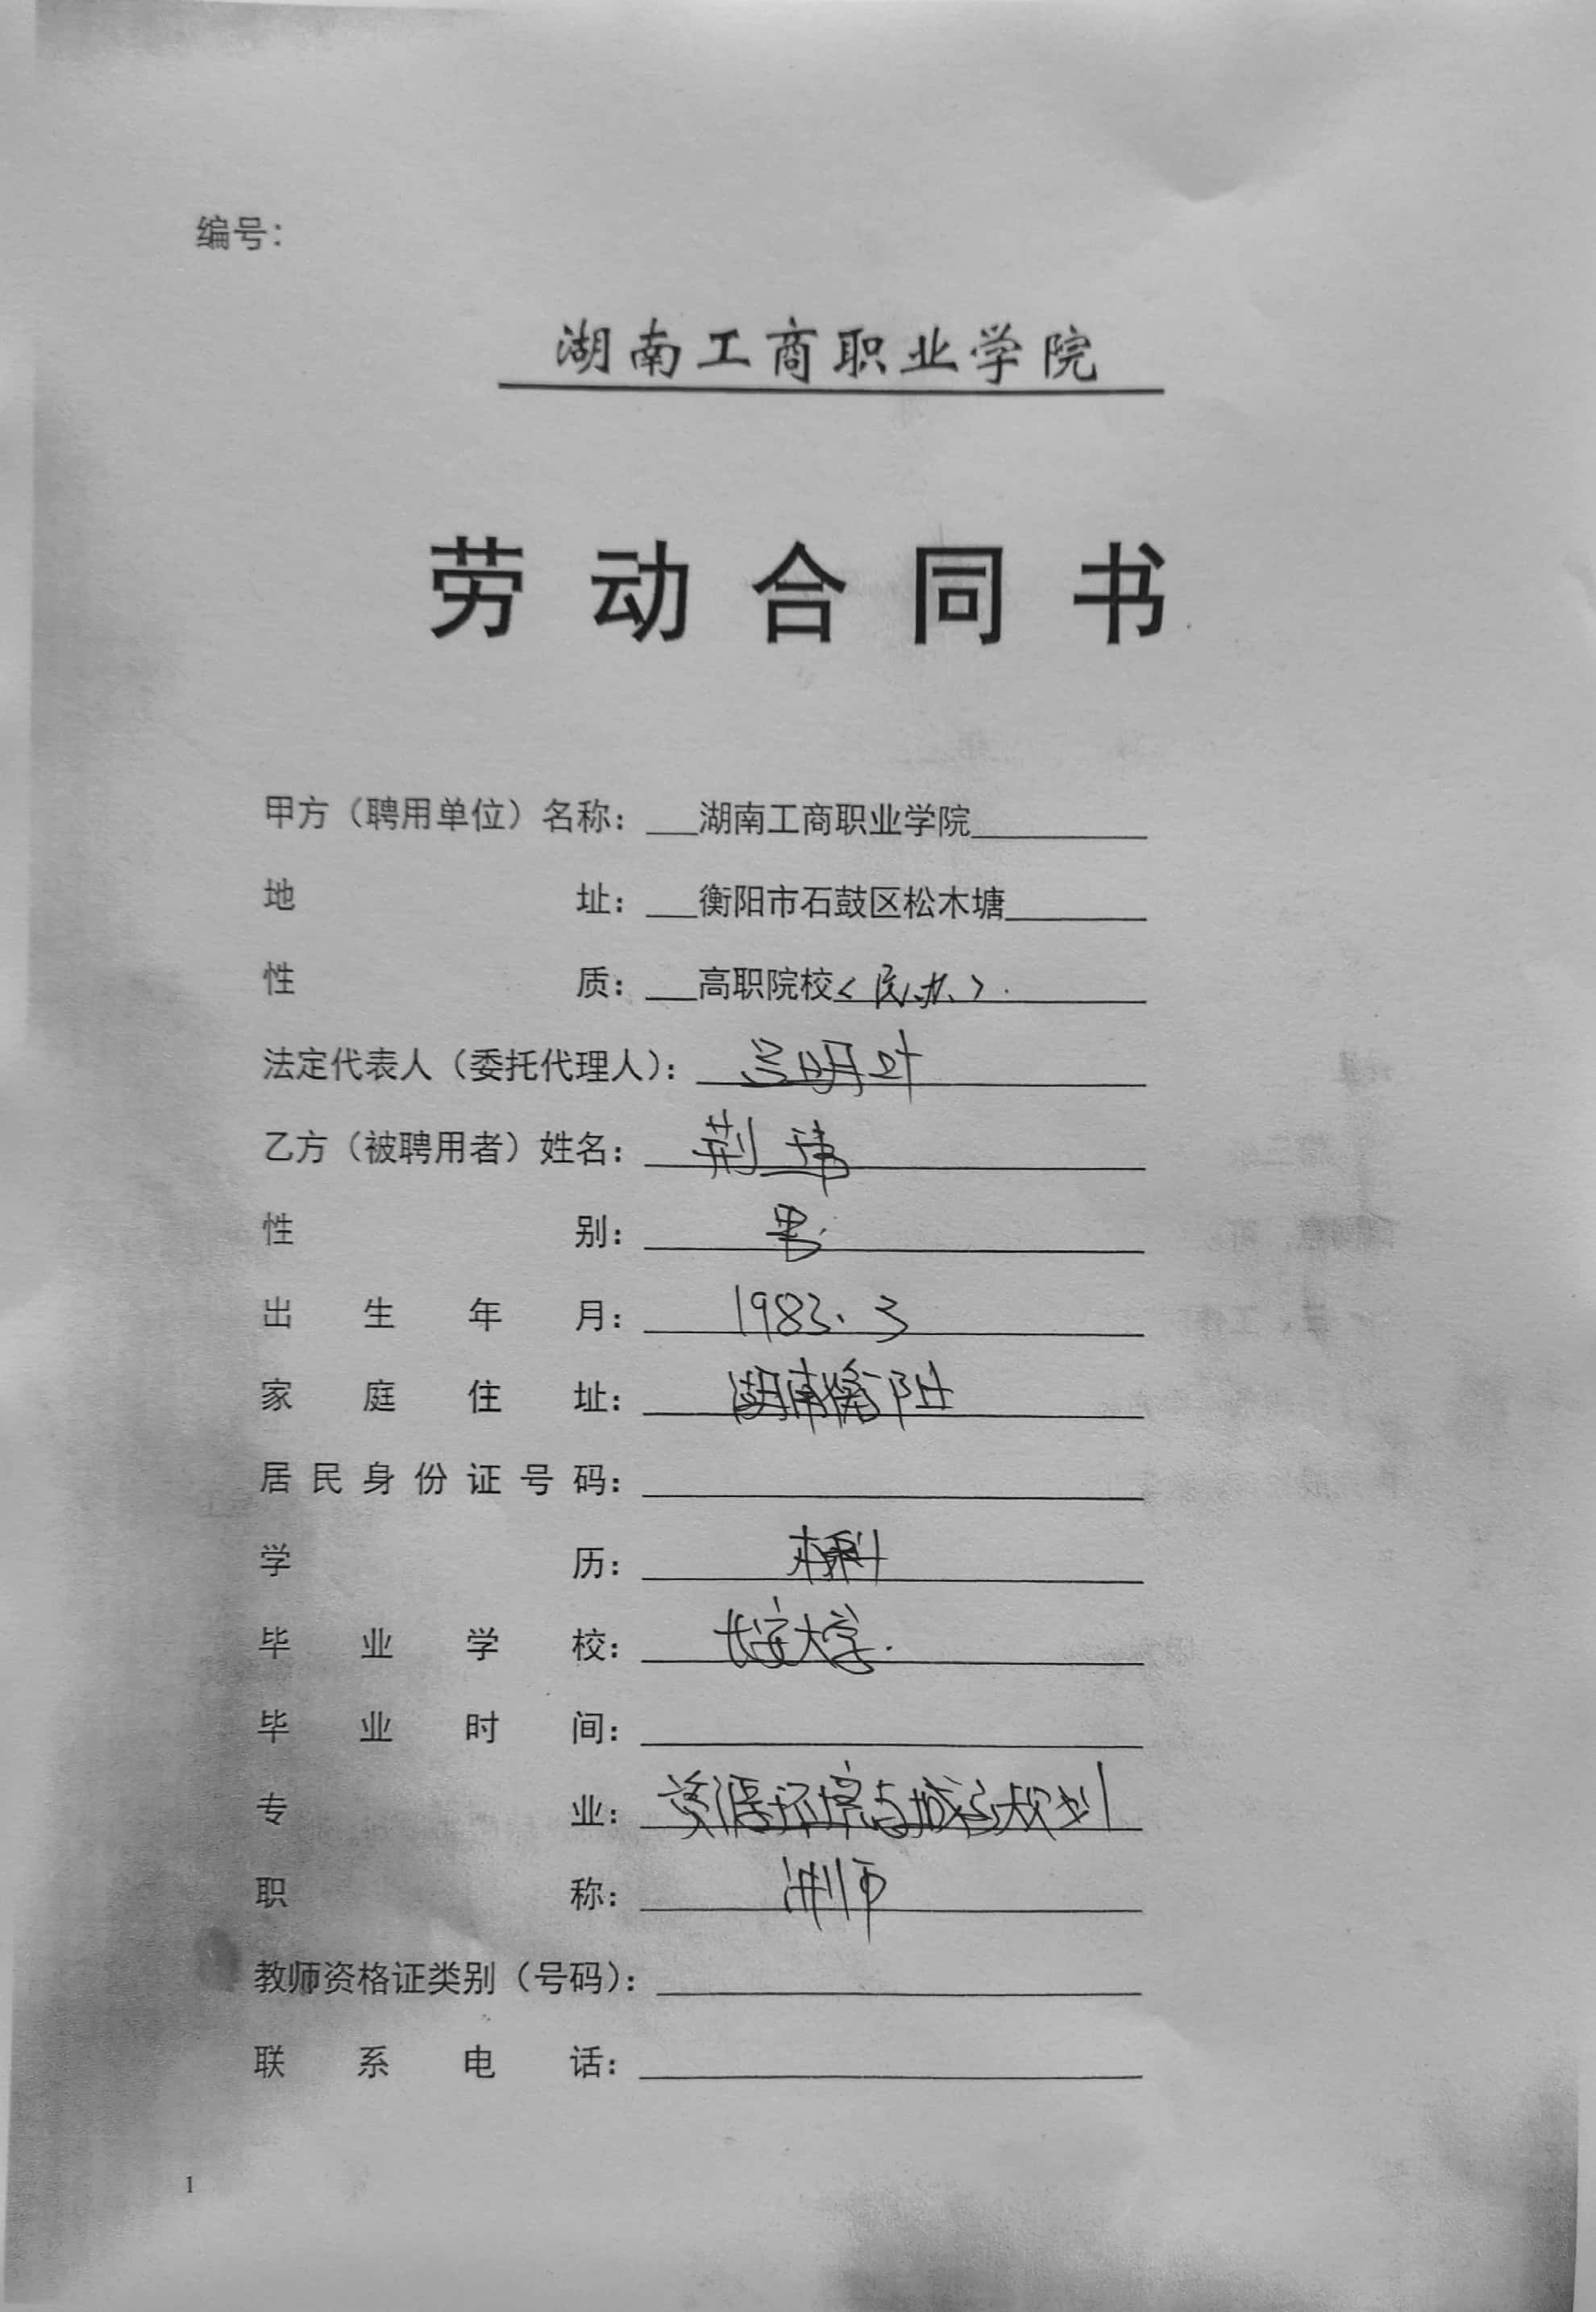 编号：
湖南工商职业学院
劳动合同书
甲方（聘用单位）名称：湖南工商职业学院
地址：衡阳市石鼓区松木塘
性质：高职院校<民办>.
法定代表人（委托代理人）：明叶
乙方（被聘用者）姓名：荆玮
性别：男
出生年月：1983.3
家庭住址：湖南衡阳
居民身份证号码：
学历：本科
毕业学校：长安大学.
毕业时间：
专业：资源环境与城乡规划
职称：讲师
教师资格证类别（号码）：
联系电话：
1